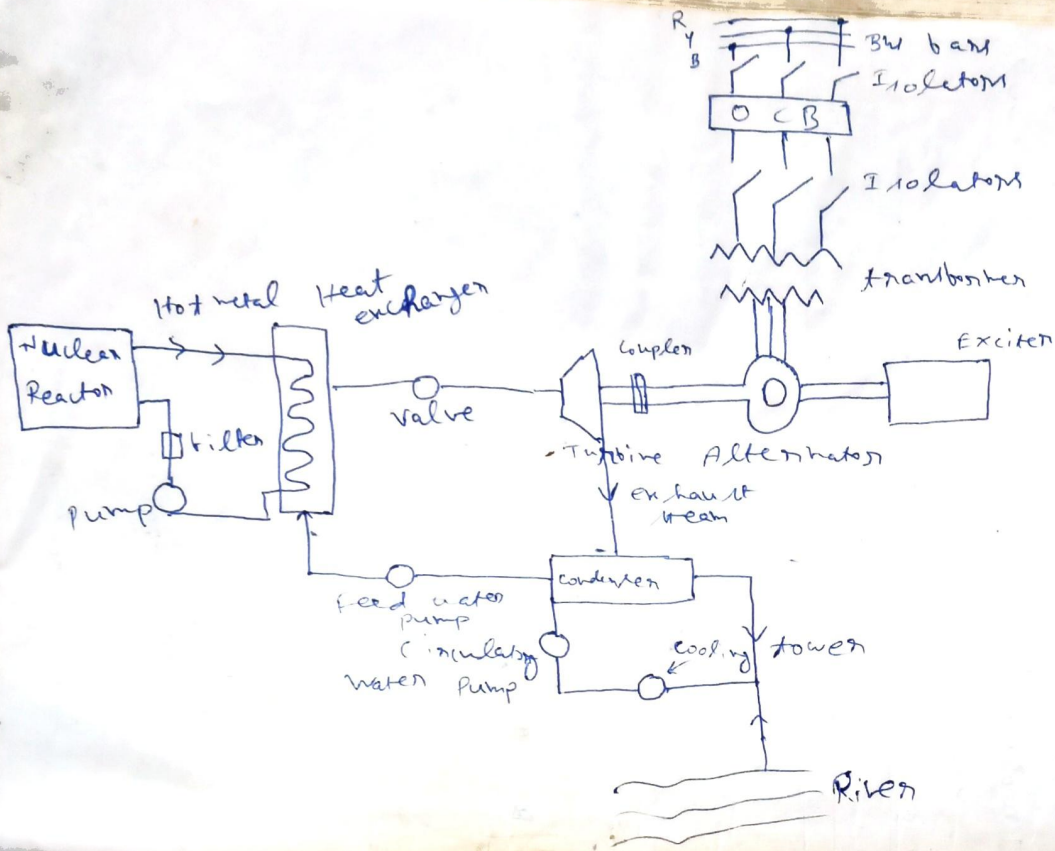 R
Y
B
Bus bars
Isolators
O C B
Isolators
transformer
Hot metal
Heat
exchanger
Nuclear
Reactor
filter
Pump
Valve
Coupler
Exciter
Turbine
Alternator
exhaust
steam
Condenser
feed water
pump
Circulating
water Pump
cooling tower
River